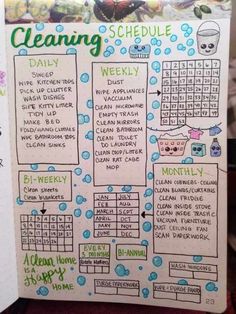 Cleaning
SCHEDULE
DAILY
SWEEP
WIPE KITCHEN TOPS
PICK UP CLUTTER
WASH DISHES
SIFT KITTY LITTER
TIDY UP
MAKE BED
FOLD/HANG CLOTHES
WIPE BATHROOM
CLEAN SINKS
WEEKLY
DUST
WIPE APPLIANCES
VACUUM
CLEAN MICROWAVE
EMPTY TRASH
CLEAN MIRRORS
CLEAN BATHROOM
CLEAN TOILET
DO LAUNDRY
CLEAN LITTER
CLEAN RAT CAGE
MOP
BI-WEEKLY
Clean sheets
Clean blankets
JAN
JULY
FEB
AUG
MARCH
SEPT
APRIL
OCT
MAY
NOV
JUNE
DEC
MONTHLY
CLEAN COBWEBS-CEILING
CLEAN BLINDS/CURTAINS
CLEAN FRIDGE
CLEAN INSIDE STOVE
CLEAN INSIDE TRASH C
VACUUM FURNITURE
DUST CEILING FAN
SCAN PAPERWORK
A Clean Home
is a
Happy
Home
EVERY
3 MONTHS
BI-ANNUAL
WASH WINDOWS
PURGE PAPERWORK
23